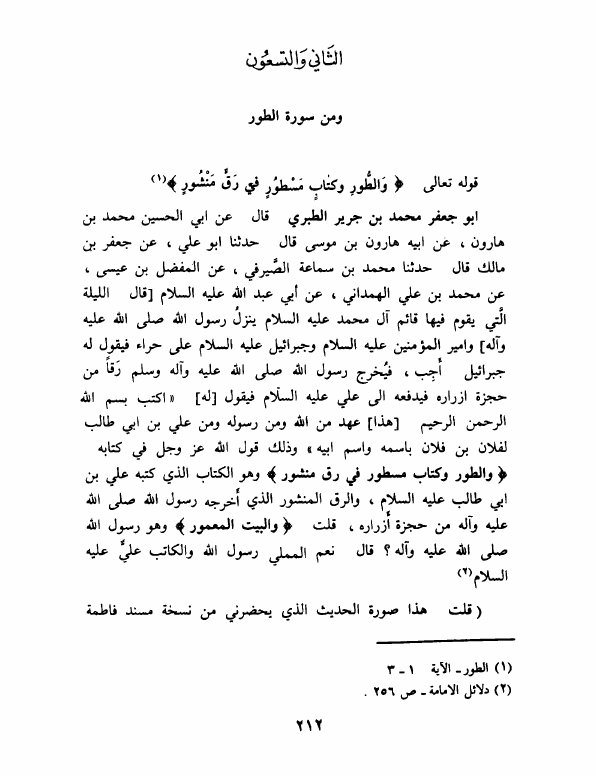 الثاني والتسعون
ومن سورة الطور
قوله تعالى ﴿ وَالطُّورِ وكتابٍ مَسْطُوْرٍ في رَقٍّ مَنْشُورٍ ﴾(١)
ابو جعفر محمد بن جرير الطبري قال عن ابي الحسين محمد بن
هارون ، عن ابيه هارون بن موسى قال حدثنا ابو علي ، عن جعفر بن
مالك قال حدثنا محمد بن سماعة الصَّيرفي ، عن المفضل بن عيسى ،
عن محمد بن علي الهمداني ، عن أبي عبد الله عليه السلام [قال الليلة
الَّتي يقوم فيها قائم آل محمد عليه السلام ينزلُ رسول الله صلى الله عليه
وآله] وامير المؤمنين عليه السلام وجبرائيل عليه السلام على حراء فيقول له
جبرائيل أَجِب ، فيُخرج رسول الله صلى الله عليه وآله وسلم رَقاً من
حجزة ازراره فيدفعه الى علي عليه السلام فيقول [له] «اكتب بسم الله
الرحمن الرحيم [هذا] عهد من الله ومن رسوله ومن علي بن ابي طالب
لفلان بن فلان باسمه واسم ابيه» وذلك قول الله عز وجل في كتابه
﴿ والطور وكتاب مسطور في رق منشور ﴾ وهو الكتاب الذي كتبه علي بن
ابي طالب عليه السلام ، والرق المنشور الذي أخرجه رسول الله صلى الله
عليه وآله من حجزة أزراره ، قلت ﴿ والبيت المعمور ﴾ وهو رسول الله
صلى الله عليه وآله ؟ قال نعم المملي رسول الله والكاتب عليٌّ عليه
السلام(٢)
( قلت هذا صورة الحديث الذي يحضرني من نسخة مسند فاطمة
(١) الطور ـ الآية ١ ـ ٣
(٢) دلائل الامامة ـ ص ٢٥٦ .
٢١٢